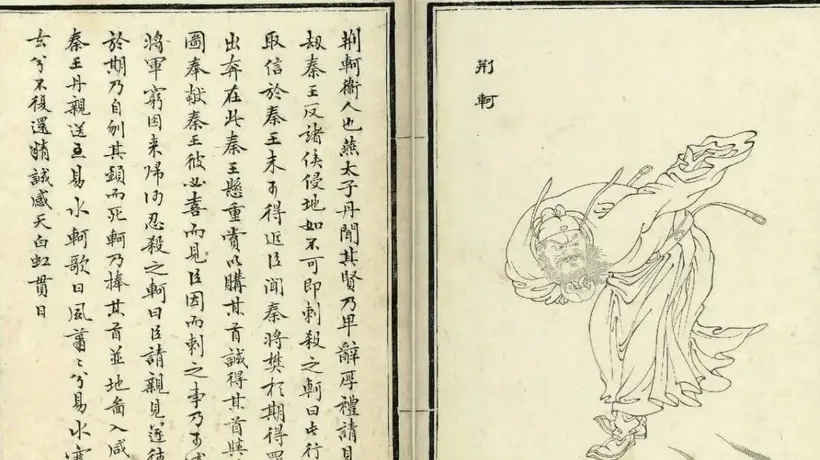 荆軻
荆軻衛人也燕太子丹聞其賢乃卑辭厚禮請見
刼秦王反諸侯侵地如不可即刺殺之軻曰此行
取信於秦王未可得近臣聞秦將樊於期得罪
出奔在此秦王懸重賞以購其首誠得其首與
圖奉献秦王彼必喜而見臣因而刺之事乃可成
將軍窮困来歸何忍殺之軻曰臣請親見遂往
於期乃自刎其頭而死軻乃捧其首並地啚入咸
秦王丹親送至易水軻歌曰風蕭〻兮易水寒
去兮不復還精誠感天白虹貫日